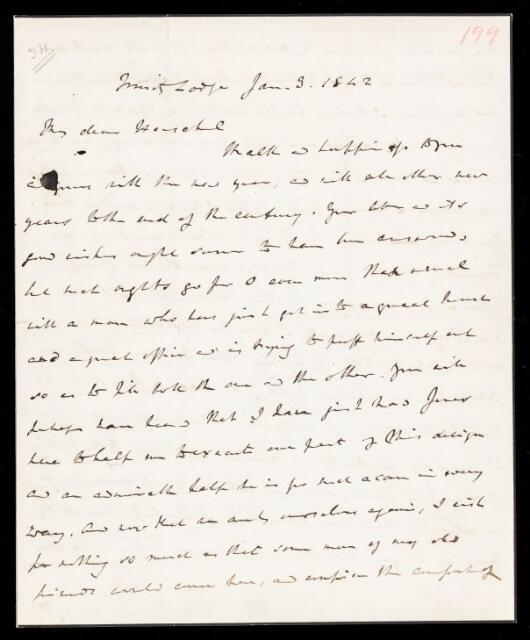 199
JH
Trinity Lodge Jan. 3. 1842
My dear Herschel
Health & happiness to you
& yours with the new year, & with all other new
years to the end of the century. Your letter & its
good wishes ought sooner to have been answered,
but such oughts go for 0 even more than usual
with a man who has just got into a great house
and a great office & is trying to puff himself out
so as to fill both the one & the other. You will
perhaps have heard that I have just had Jones
here to help me to execute one part of this design
and an admirable help he is for such a case in every
way. And now that we are by ourselves again, I wish
for nothing so much as that some more of my old
friends would come here, and the comfort of